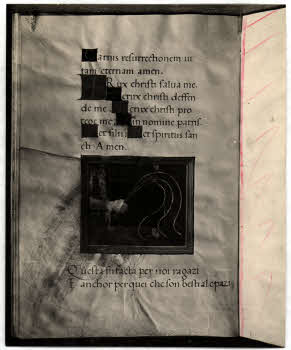 arnis resurrectionem ui
tam eternam amen.
Crux christi salua me.
Crux christi deffen
de me. Crux christi pro
tege me. in nomine patris
et filii et spiritus san
cti Amen.
Questa si facta per noi ragazi
E anchor per quei che son